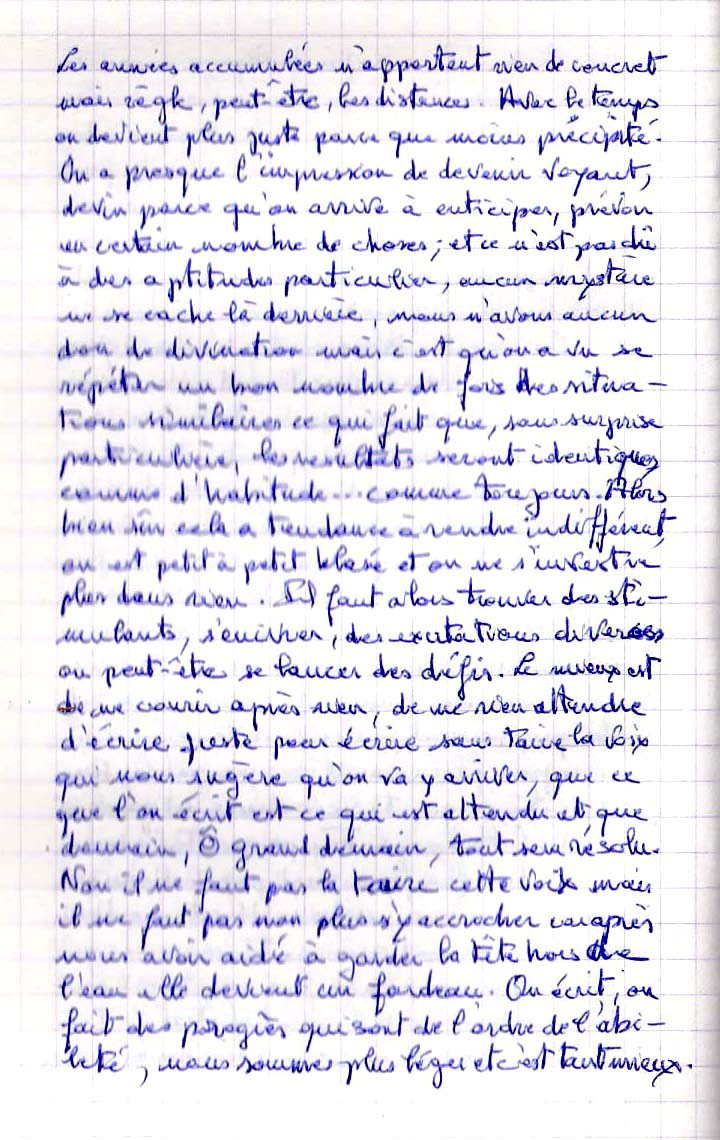 Les années accumulées n'apportent rien de concret
mais règle, peut-être, les distances. Avec le temps
on devient plus juste parce que moins précipité.
On a presque l'impression de devenir voyant,
devin parce qu'on arrive à enticiper, prévoir
un certain nombre de choses; et ce n'est pas dû
à des aptitudes particulier, aucun mystère
ne se cache là derrière, nous n'avons aucun
don de divination mais c'est qu'on a vu se
répéter un bon nombre de fois des situa-
tions similaires ce qui fait que, sans surprise
particulière, les resultats seront identiques
comme d'habitude... comme toujours. Alors
bien sûr cela a tendance à rendre indifférent,
on est petit à petit blasé et on ne s'investie
plus dans rien. Il faut alors trouver des sti-
mulants, s'enivrer, des exitations diverses
ou peut-être se lancer des défis. Le mieux est
de ne courir après rien, de ne rien attendre
d'écrire juste pour écrire sans taire la voix
qui nous sugère qu'on va y arriver, que ce
que l'on écrit est ce qui est attendu et, que
demain, Ô grand demain, tout sera résolu.
Non il ne faut pas la taire cette voix mais
il ne faut pas non plus s'y accrocher car après
nous avoir aidé à garder la tête hors de
l'eau elle devient un fardeau. On écrit, on
fait des progrès qui sont de l'ordre de l'abi-
leté, nous sommes plus léger et c'est tant mieux.